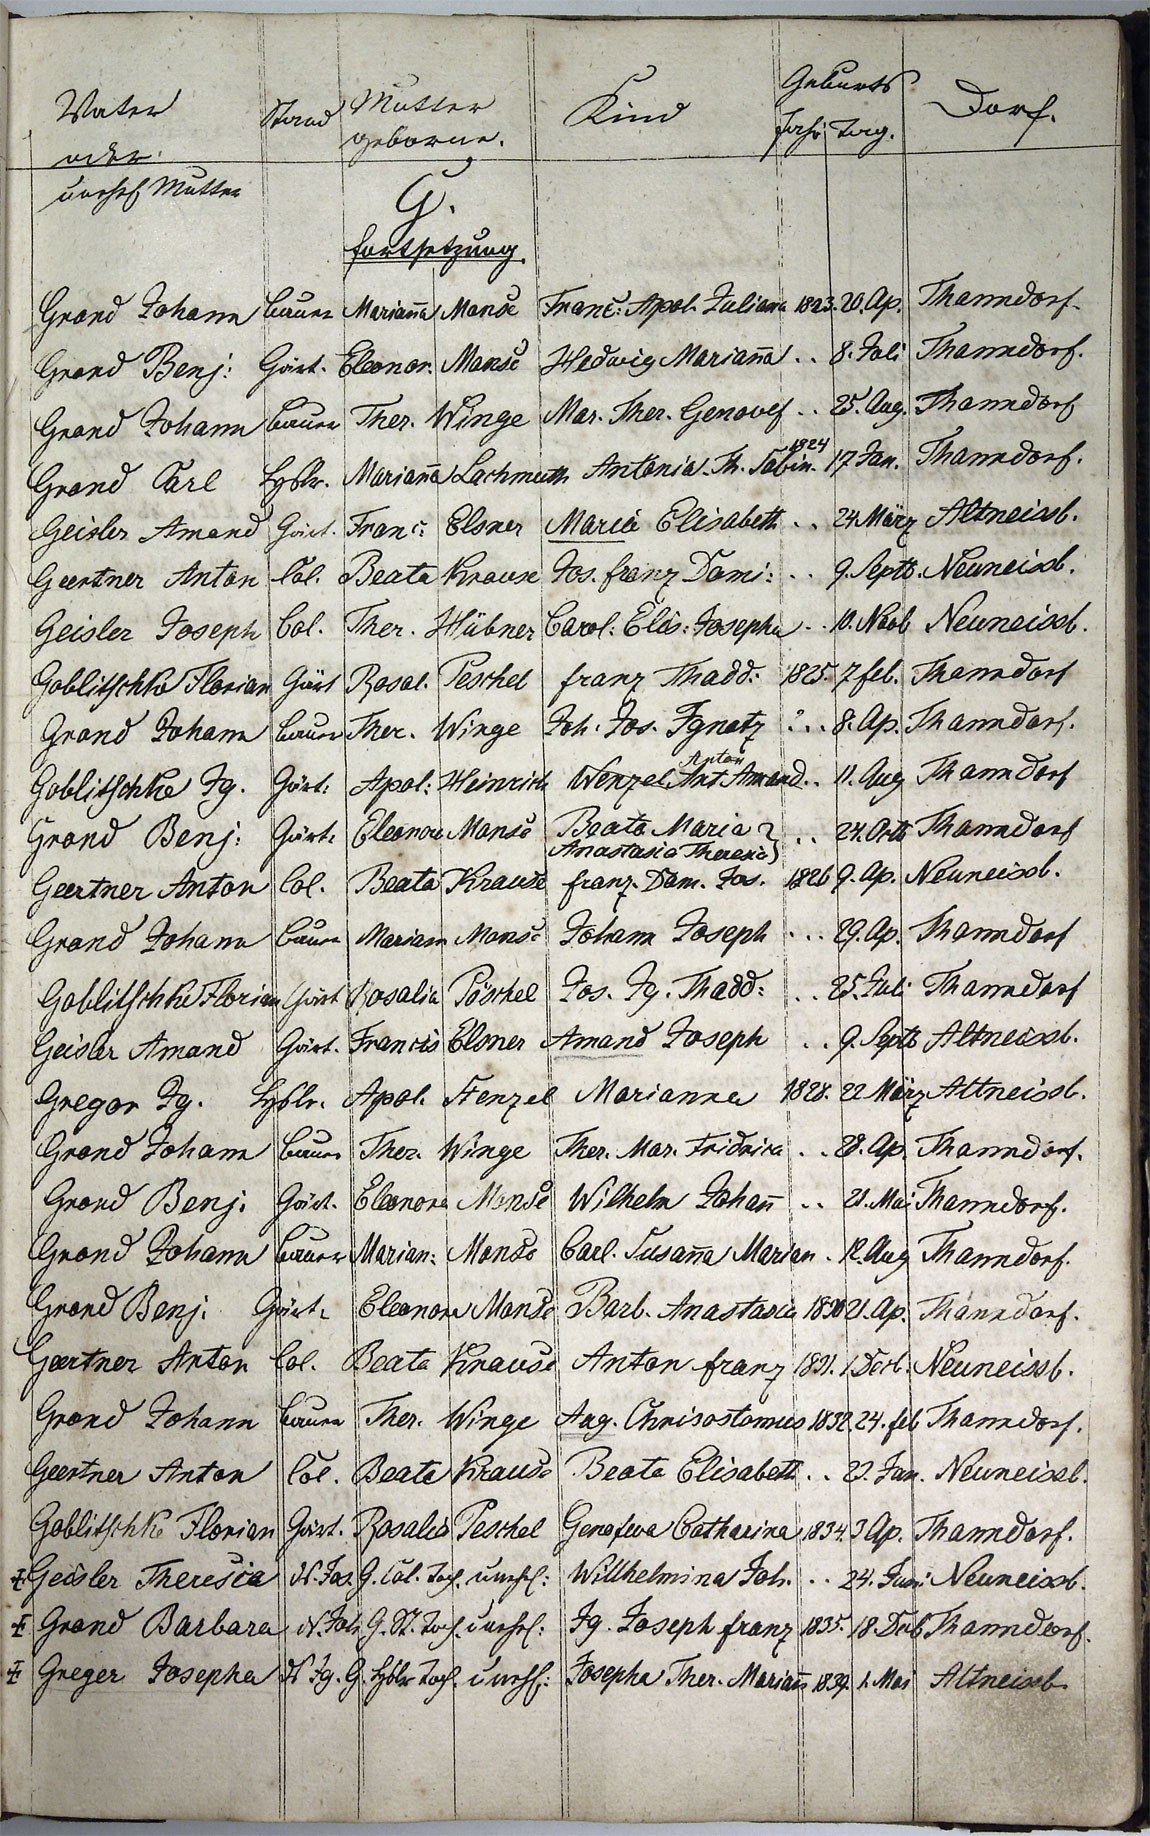 Vater Stand Mutter Kind Geburts Dorf.
oder geborne. Jahr Tag.
unehel Mutter
G.
Fortsetzung.
Grond Johann Bauer Mariana Monse Franc: Apol. Juliana 1823. 20. Ap. Thanndorf.
Grond Benj: Gärt. Eleonor. Monse Hedwig Mariana .. 8. Juli Thanndorf.
Grond Johann Bauer Ther. Winge Mar. Ther. Genovef .. 25. Aug. Thanndorf
Grond Carl Hslr. Mariana Lachmuth Antonia Th. Sabin. 1824 17 Jan. Thanndorf.
Geisler Amand Gärt. Franc: Elsner Maria Elisabeth .. 24. März Altneissb.
Geertner Anton Col. Beata Krause Jos. Franz Domi: .. 9. Septb. Neuneissb.
Geisler Joseph Col. Ther. Hübner Carol: Elis: Josepha .. 10. Novb Neuneissb.
Goblitschke Florian Gärt Rosal. Peschel Franz Thadd: 1825. 7 Feb. Thanndorf
Grond Johann Bauer Ther. Winge Joh. Jos. Ignatz ... 8. Ap. Thanndorf.
Anton
Goblitschke Ig. Gärt: Apol: Heinrich Wenzel Ant Amand .. 11. Aug Thanndorf
Grond Benj: Gärt: Eleonora Monse Beata Maria } .. 24. Octb Thanndorf
Anastasia Theresia
Geertner Anton Col. Beata Krause Franz. Dom. Jos. 1826 9. Ap. Neuneissb.
Grond Johann Bauer Mariann Monse Johann Joseph ... 29. Ap. Thanndorf
Goblitschke Florian Gärt Rosalia Pöschel Jos. Ig. Thadd: .. 25. Juli Thanndorf
Geisler Amand Gärt. Francis Elsner Amand Joseph .. 9. Septb Altneissb.
Gregor Ig. Hslr. Apol. Stenzel Marianna 1828. 22 März Altneissb.
Grond Johann Bauer Ther. Winge Ther. Mar. Fridrica .. 28. Ap. Thanndorf.
Grond Benj. Gärt. Eleonora Monse Wilhelm Johan .. 21. Mai Thanndorf.
Grond Johann Bauer Marian: Monse Carl. Susana Marian . 12. Aug Thanndorf.
Grond Benj. Gärt. Eleonora Monse Barb. Anastasia 1830 21. Ap. Thanndorf.
Geertner Anton Col. Beata Krause Anton Franz 1831. 1 Decb. Neuneissb.
Grond Johann Bauer Ther. Winge Aug. Chrisostomus 1832. 24. Feb Thanndorf.
Geertner Anton Col. Beata Krause Beata Elisabeth .. 23. Jan. Neuneissb.
Goblitschke Florian Gärt. Rosalia Peschel Genofeva Catharina 1834. 3 Ap. Thanndorf.
Geisler Theresia Jos. G. Col. Toch. unehel: Willhelmina Joh. .. 24. Juni Neuneissb.
Grond Barbara Joh G. Toch. unehel: Ig. Joseph Franz 1835. 18. Decb Thanndorf.
Greger Josepha Ig. G. Hslr Toch. unehel: Josepha Ther. Marian 1839. 1. Mai Altneissb